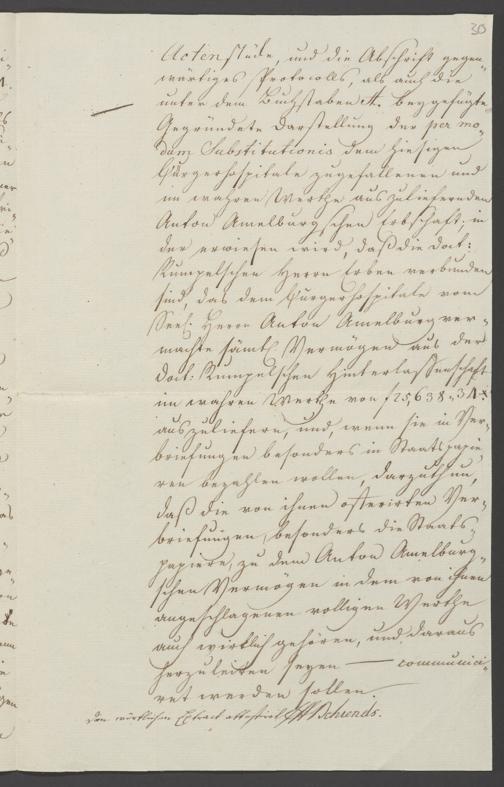 30
Actenstücke, und die Abschrift gegen-
wärtiges Protocolls, als auch die
unter dem Buchstaben A. beygefügte
Gegründete Darstellung der per mo-
dum Substitutionis dem hiesigen
Bürgerhospitale zugefallenen und
im wahren Werthe auszuliefernden
Anton Amelburgschen Erbschaft, in
der erwiesen wird, daß die Doct:
Rumpelschen Herrn Erben verbunden
sind, das dem Bürgerhospitale vom
Seel: Herrn Anton Amelburg ver-
machte sämtl Vermögen aus der
Doct: Rumpelschen Hinterlassenschaft
im wahren Werthe von f 25,638 „ 31 x
auszuliefern, und, wenn sie in Ver-
briefungen besonders in Staatspapie-
ren bezahlen wollen, darzuthun,
daß die von ihnen offerirten Ver-
briefungen, besonders die Staats-
papiere, zu dem Anton Amelburg-
schen Vermögen in dem von ihnen
angeschlagenen völligen Werthe
auch wirklich gehören, und daraus
herzuleiten seyen — communici-
ret werden sollen.
Den wirklichen Extract attestirt Behrends.